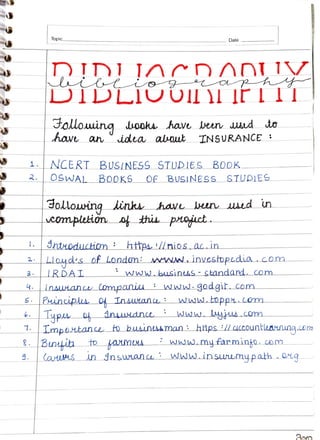 Topic
Date
BIBLIOGRAPHY
bibliography
Following books have been used to
have an idea about INSURANCE :
1. NCERT BUSINESS STUDIES BOOK
2. OSWAL BOOKS OF BUSINESS STUDIES
Following links have been used in
completion of this project.
1. Introduction : https://nios.ac.in
2. Lloyd's of London: www.investopedia.com
3. IRDAI : www.business-standard.com
4. Insurance Companies : www.godgit.com
5. Principles of Insurance : www.toppr.com
6. Types of Insurance : www.byjus.com
7. Importance to businessman : https://accountlearning.com
8. Benefits to farmers : www.myfarminfo.com
9. Careers in Insurance : www.insuremypath.org